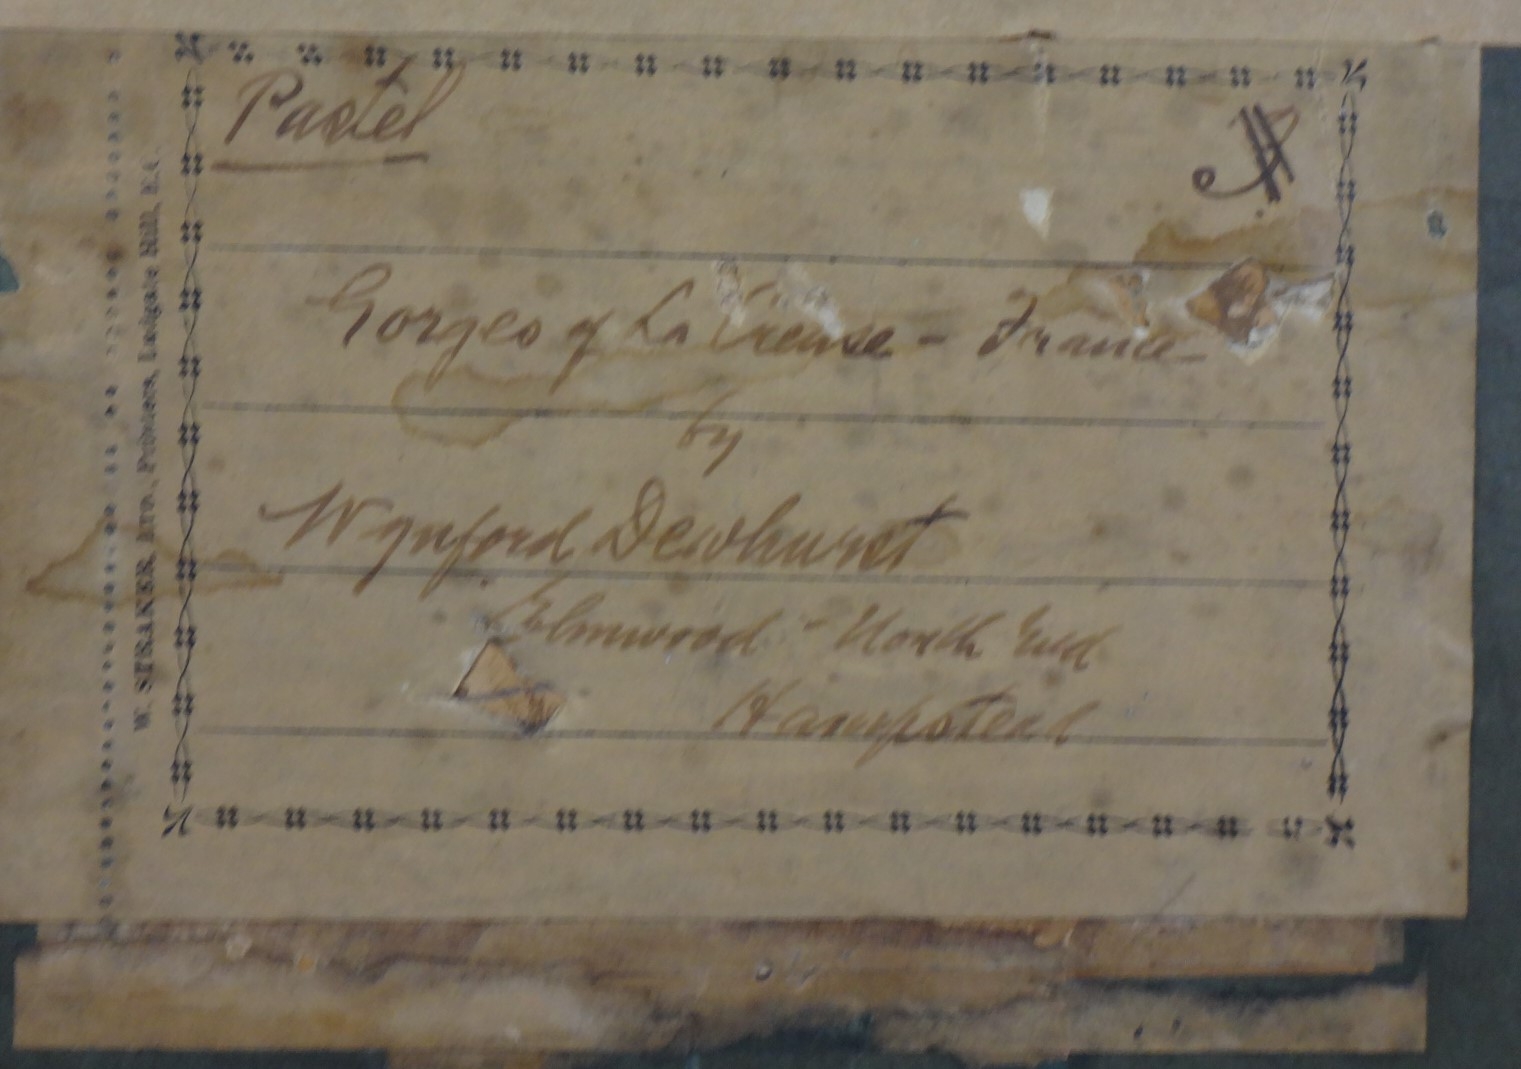 Pastel
Gorges of La Creuse - France
by
Wynford Dewhurst
Elmwood - North End
Hampstead
W. SPEAKER, Printers, Ludgate Hill, E.C.